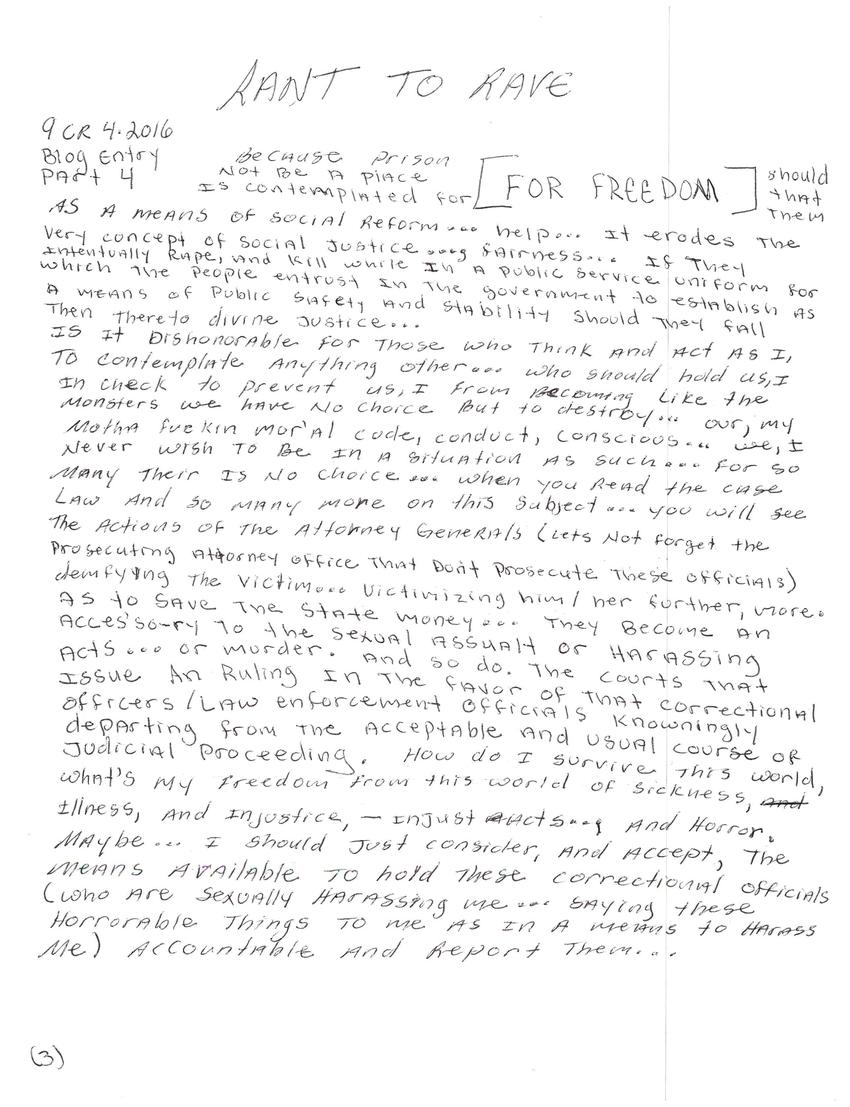 RANT TO RAVE
9 CR 4.2016
Blog Entry
Part 4
Because prison should
Not Be A place [FOR FREEDOM] that
Is contemplated for them
AS A means of social Reform... help... It erodes The
very concept of social Justice...., fairness... If They
intentually Rape, and kill while In A public service uniform for
which The People entrust In The government to establish AS
A means of Public Safety And stability Should They fall
Then thereto divine Justice...
IS It Dishonorable for Those who Think And Act As I,
To contemplate Anything other... who should hold us, I
In check to prevent us, I from Becoming Like the
monsters we have No choice But to destroy... our, my
Motha fuckin mor'al code, conduct, conscious... we, I
Never wish To Be In A situation As such... for so
Many Their Is No choice... when you Read the case
Law And so many more on this subject... you will see
The Actions of The Attorney Generals (Lets Not forget the
Prosecuting Attorney office That Don't Prosecute These officials)
demfying The victim... victimizing him/her further, more.
AS to Save The State money... They Become An
Acces'so-ry To the Sexual Assualt or Harassing
Acts... or murder. And so do. The courts That
Issue An Ruling In The favor of That correctional
officers/Law enforcement officials knowningly
departing from The Acceptable And usual course of
Judicial Proceeding. How do I survive This world,
what's My freedom from this world of sickness, and
Illness, And Injustice, — Injust Acts..., And Horror.
Maybe... I should Just consider, And Accept, The
means Available To hold These correctional officials
(who Are Sexually Harassing me... saying these
Horrorable Things To me As In A means to Harass
Me) Accountable And Report Them...
(3)